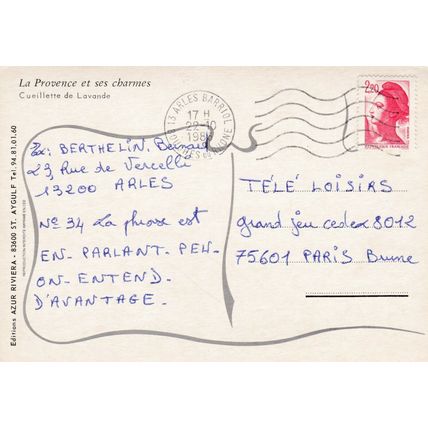 La Provence et ses charmes
Cueillette de Lavande
13 ARLES BARRIOL
17 H
22-10
BDU RHONE
2,20
Ex: BERTHELIN. Bernard
23, Rue de Vercelli
13200 ARLES
N° 34 La phrase est
EN - PARLANT - PEU -
ON - ENTEND -
D'AVANTAGE -
TÉLÉ LOISIRS
grand jeu cedex 8012
75601 PARIS Brune
Editions AZUR RIVIERA - 83600 ST. AYGULF Tel. 94.81.01.60